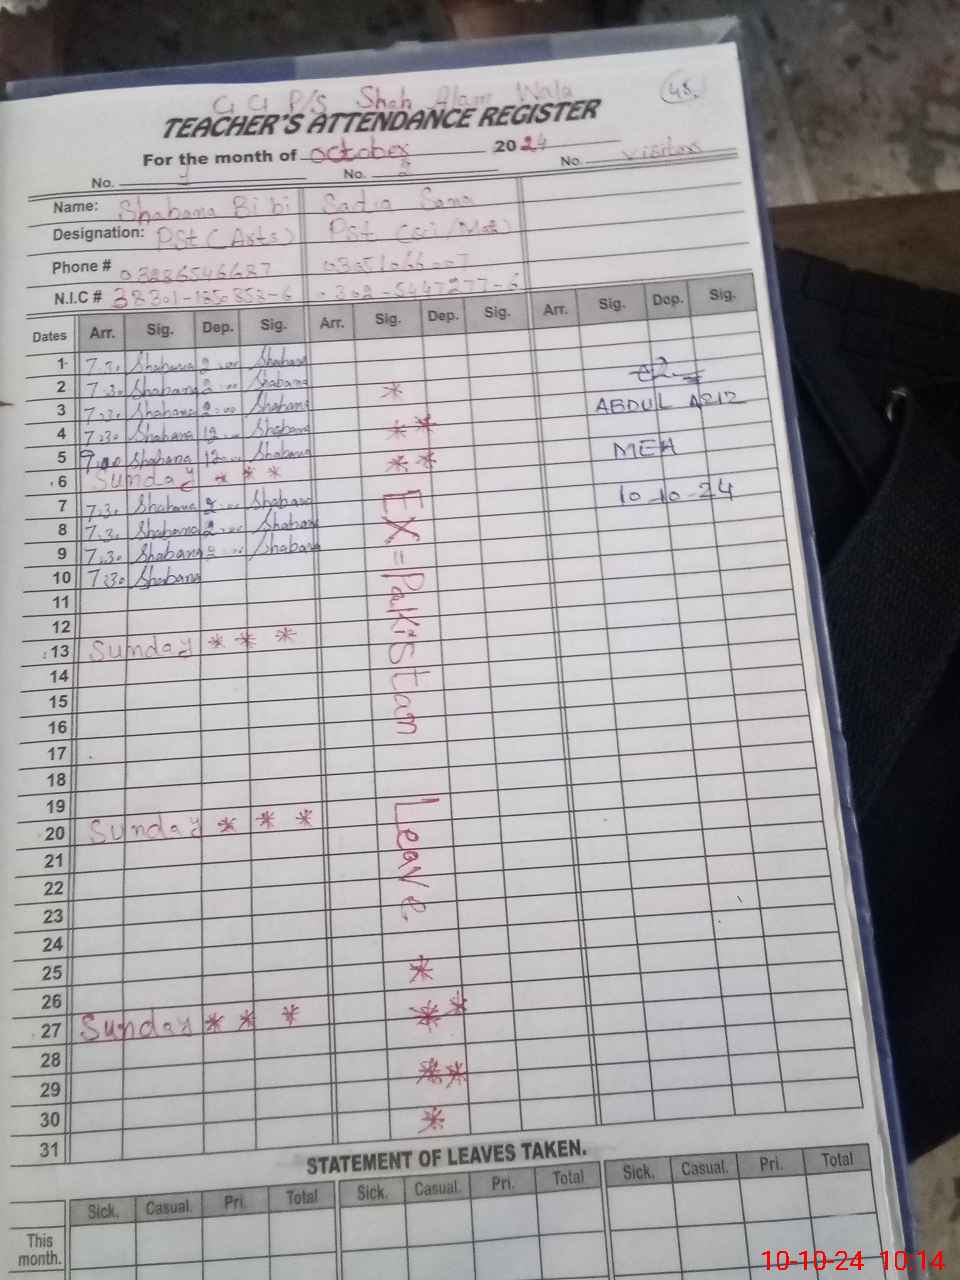 G G P/S Shah Alam Wala 48.
TEACHER'S ATTENDANCE REGISTER
For the month of October 2024
No. 1 No. 2 No. Visitors
Name: Shabana Bi bi Sadia Sana
Designation: PSt (Arts) PSt
Phone # 03286546687
N.I.C # 38301-1850858-6
Dates Arr. Sig. Dep. Sig. Arr. Sig. Dep. Sig. Arr. Sig. Dep. Sig.
1 7.30 Shabana 2:00 Shabana
2 7.30 Shabana 2:00 Shabana *
3 7:30 Shabana 2:00 Shabana ABDUL AZIZ
4 7:30 Shabana 12:00 Shabana * *
5 9:00 Shabana 12:00 Shabana * * MEA
6 Sunday * * *
7 7.30 Shabana 2:00 Shabana 10-10-24
8 7.30 Shabana 2:00 Shabana
9 7.30 Shabana 2:00 Shabana
10 7:30 Shabana
11
12
13 Sunday * * *
14
15
16
17
18
19
20 Sunday * * *
21
22
23
24
25 *
26
27 Sunday * * * * *
28
29 * *
30 *
31
EX = Pakistan Leave
STATEMENT OF LEAVES TAKEN.
Sick. Casual. Pri. Total Sick. Casual. Pri. Total Sick. Casual. Pri. Total
This month.
10-10-24 10:14